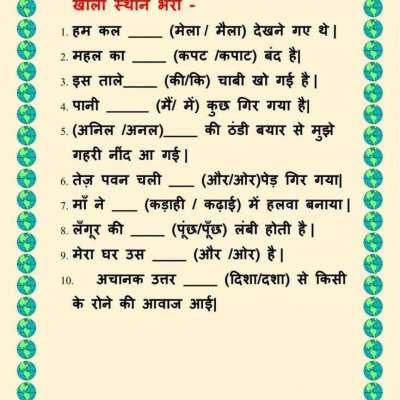 खाली स्थान भरो -
1. हम कल _____ (मेला / मैला) देखने गए थे |
2. महल का _____ (कपट /कपाट) बंद है|
3. इस ताले_____ (की/कि) चाबी खो गई है |
4. पानी ______ (मैं/ में) कुछ गिर गया है|
5. (अनिल /अनल)_____ की ठंडी बयार से मुझे
गहरी नींद आ गई |
6. तेज़ पवन चली ____ (और/ओर)पेड़ गिर गया|
7. माँ ने ____ (कड़ाही / कढ़ाई) में हलवा बनाया |
8. लँगूर की _____ (पूंछ/पूँछ) लंबी होती है |
9. मेरा घर उस _____ (और /ओर) है |
10. अचानक उत्तर _____ (दिशा/दशा) से किसी
के रोने की आवाज आई|